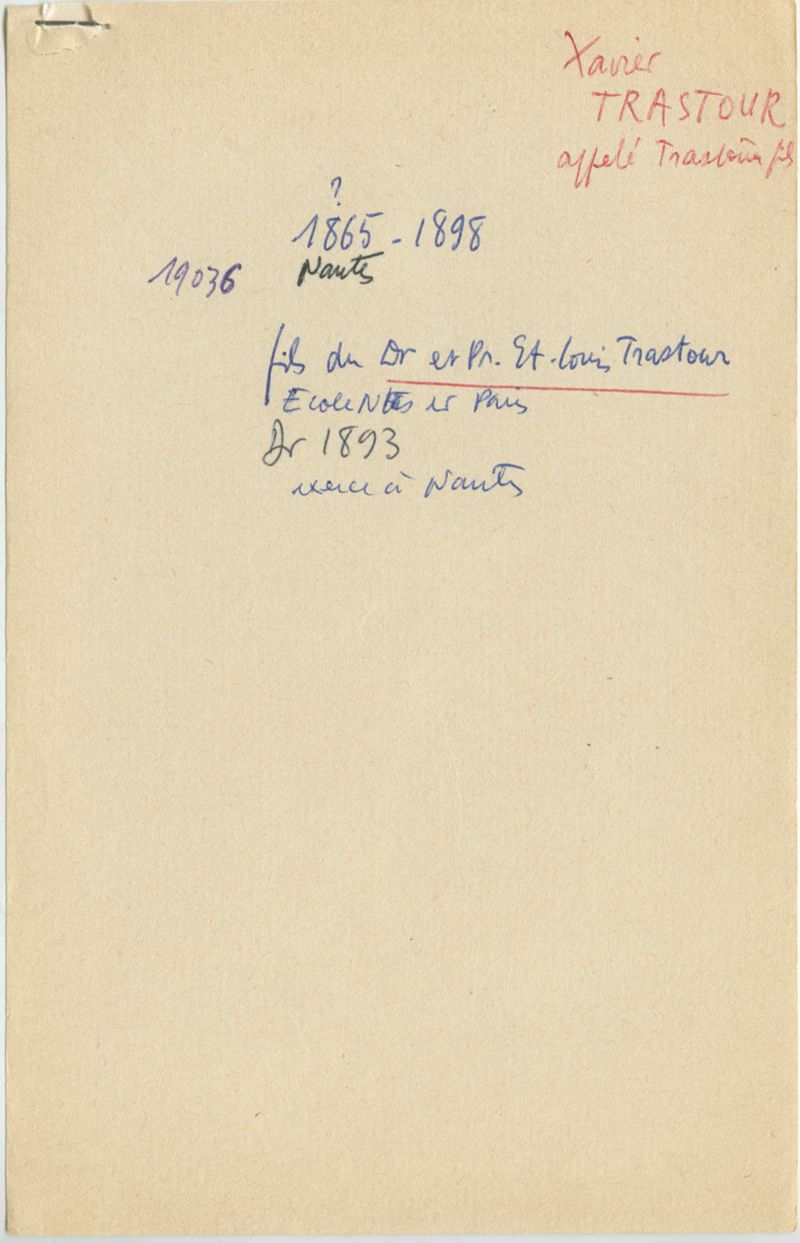 Xavier
TRASTOUR
appelé Trastour fils
?
1865 - 1898
19036 Nantes
fils du Dr et Pr. Et. Louis Trastour
Ecole Ntes et Paris
Dr 1893
exerce à Nantes